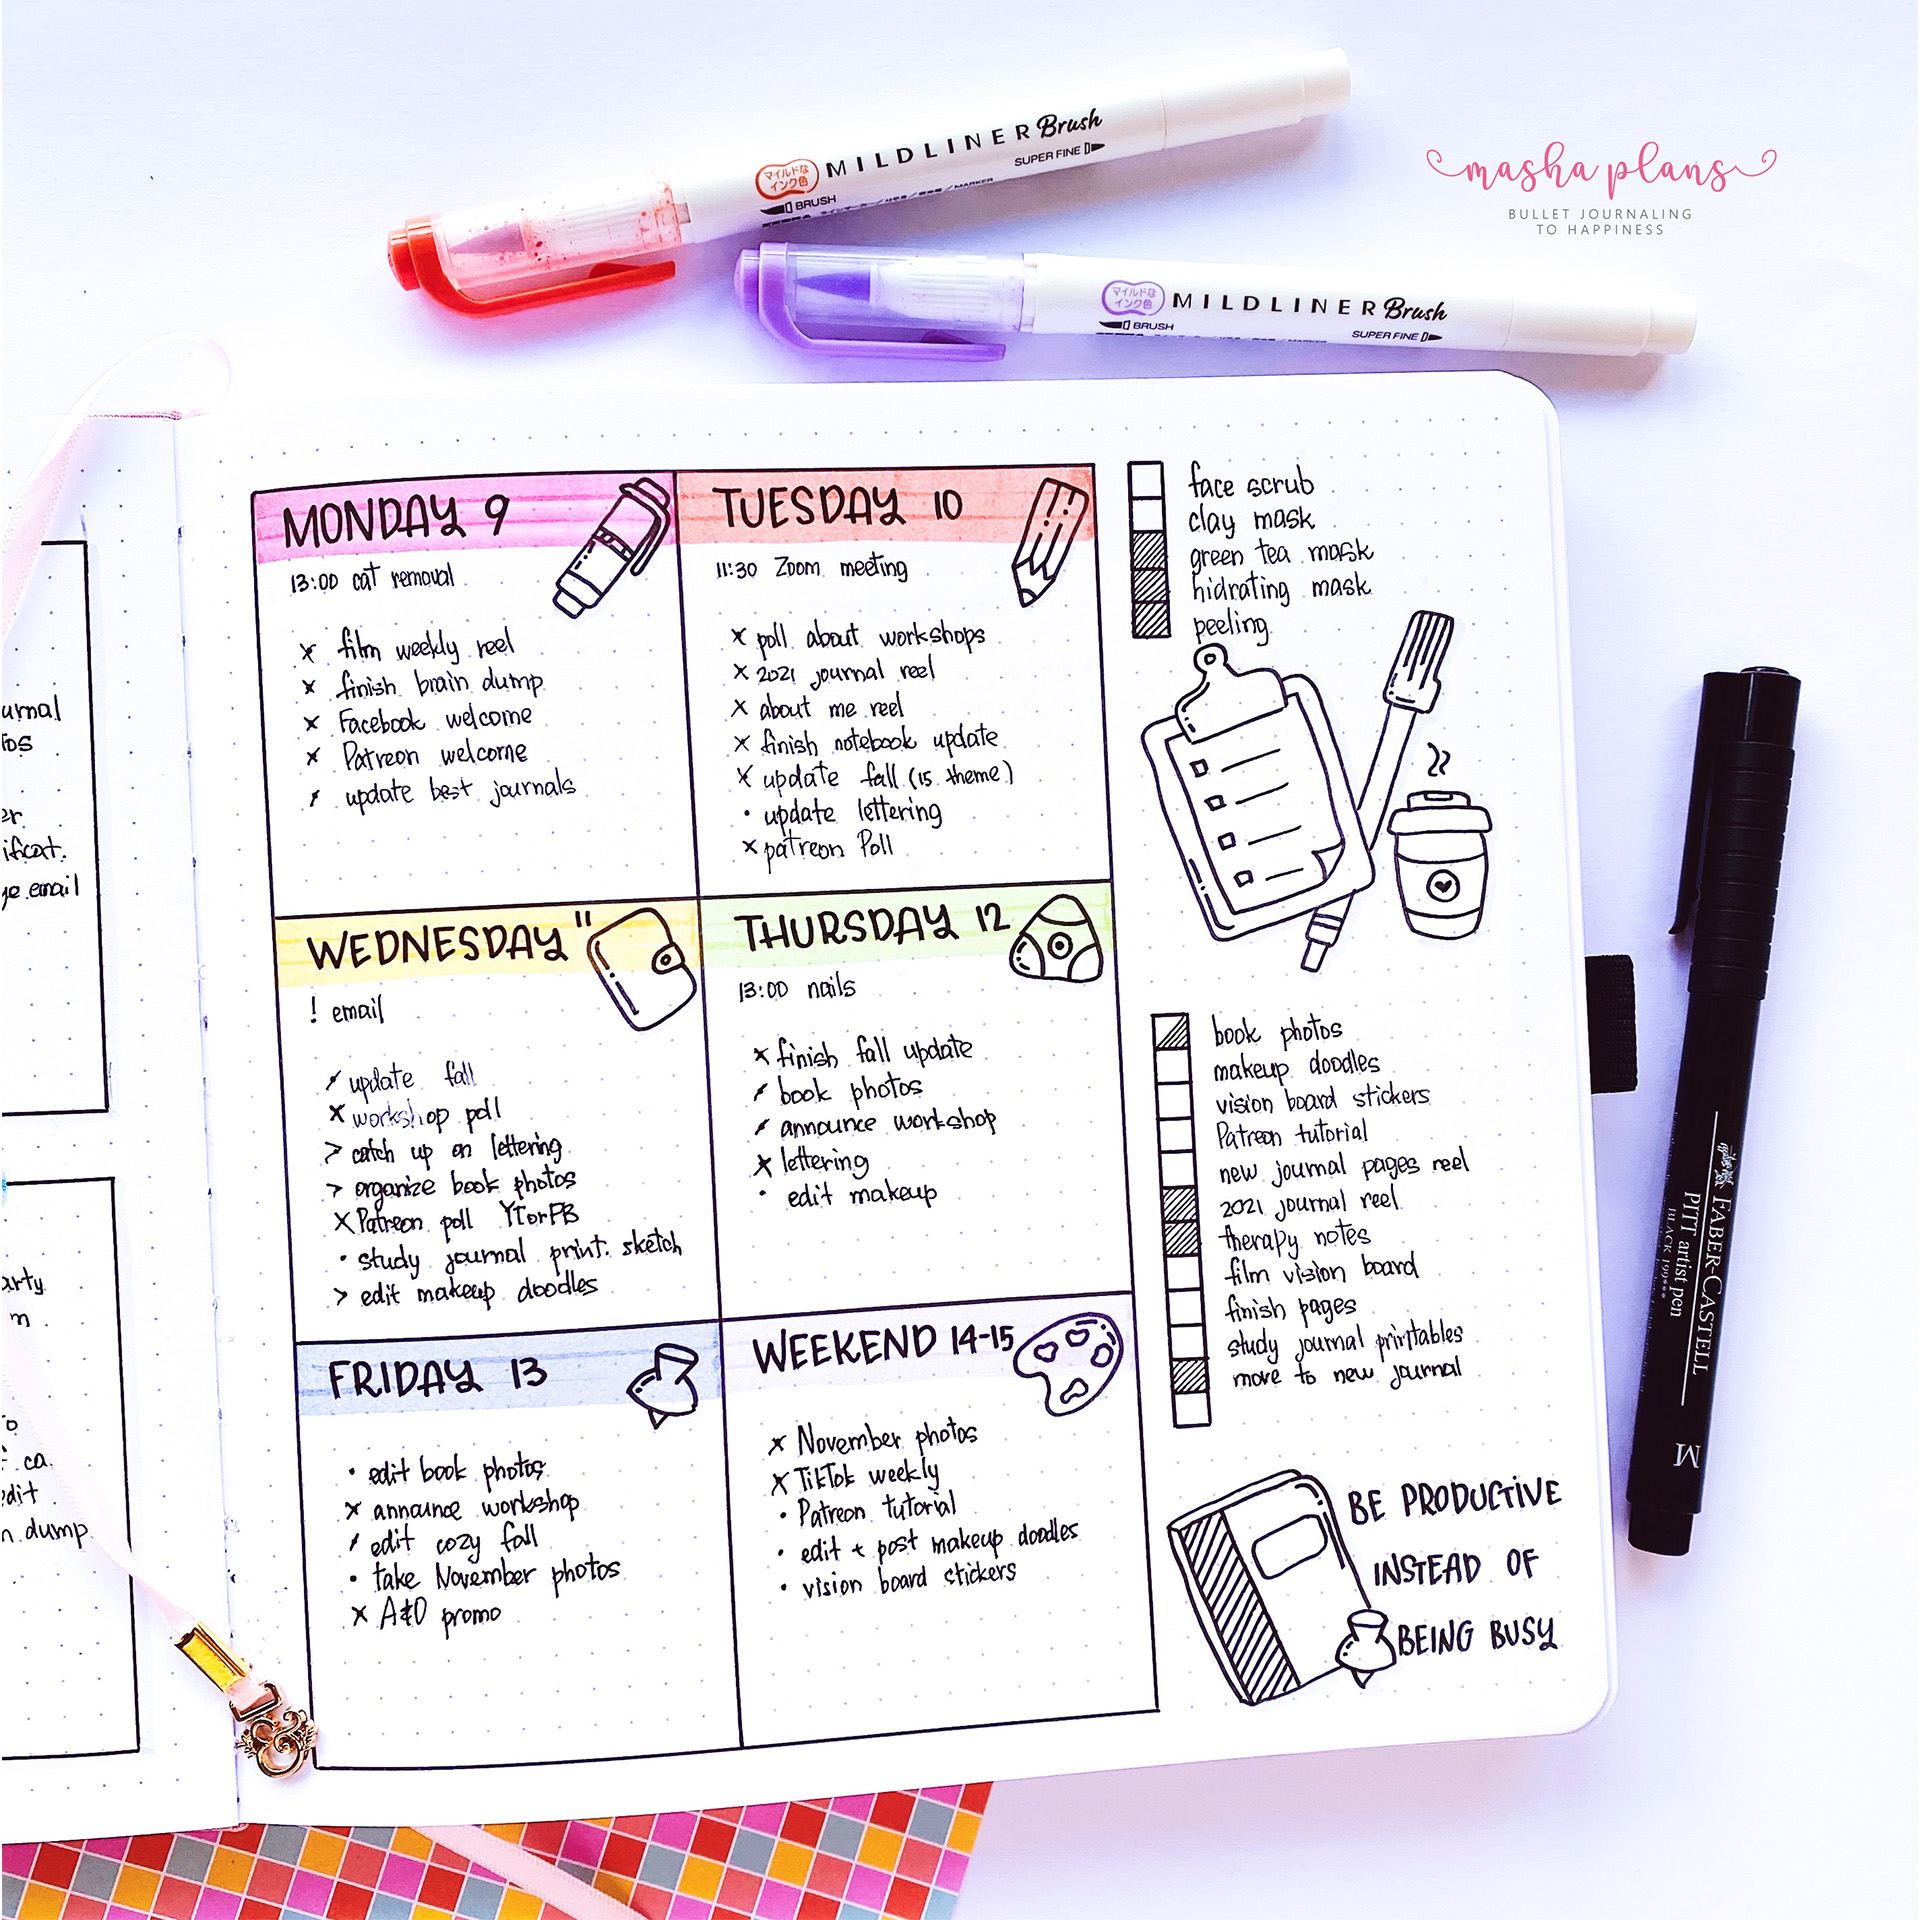 MILDLINER Brush
マイルドな
インク色
BRUSH
SUPER FINE
MILDLINER Brush
マイルドな
インク色
BRUSH
SUPER FINE
masha plans
BULLET JOURNALING
TO HAPPINESS
MONDAY 9
13:00 cat removal
x film weekly reel
x finish brain dump
x Facebook welcome
x Patreon welcome
/ update best journals
TUESDAY 10
11:30 Zoom meeting
x poll about workshops
x 2021 journal reel
x about me reel
x finish notebook update
x update fall (15 theme)
• update lettering
x patreon Poll
WEDNESDAY 11
! email
/ update fall
x workshop poll
> catch up on lettering
> organize book photos
x Patreon poll YTorPB
• study journal print. sketch
> edit makeup doodles
THURSDAY 12
13:00 nails
x finish fall update
/ book photos
/ announce workshop
x lettering
• edit makeup
FRIDAY 13
• edit book photos
x announce workshop
/ edit cozy fall
• take November photos
x A&O promo
WEEKEND 14-15
x November photos
x TikTok weekly
• Patreon tutorial
• edit + post makeup doodles
• vision board stickers
face scrub
clay mask
green tea mask
hidrating mask
peeling
book photos
makeup doodles
vision board stickers
Patreon tutorial
new journal pages reel
2021 journal reel
therapy notes
film vision board
finish pages
study journal printables
move to new journal
BE PRODUCTIVE
INSTEAD OF
BEING BUSY
FABER-CASTELL
PITT artist pen
BLACK 199**
M
urnal
tos
er
ificat.
ge email
arty
m
o
ca.
edit
n dump